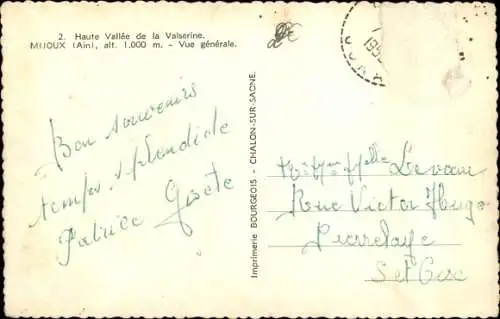 2. Haute Vallée de la Valserine.
MIJOUX (Ain), alt. 1.000 m. - Vue générale.
Bon souvenirs
temps splendide
Patrice
Imprimerie BOURGEOIS - CHALON-SUR-SAONE.
195
Rue Victor Hugo
Pierrelaye
S et Oise